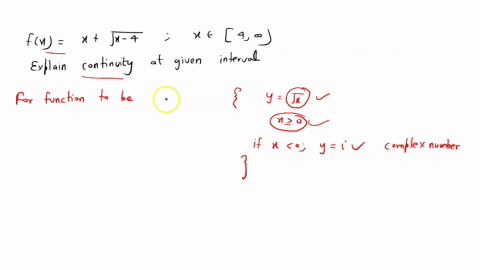 f(x) = x + √x-4 ; x ∈ [4, ∞)
Explain continuity at given interval
For function to be
{ y = √x ✓
x ≥ 0 ✓
if x < 0; y = i ✓ complex number
}